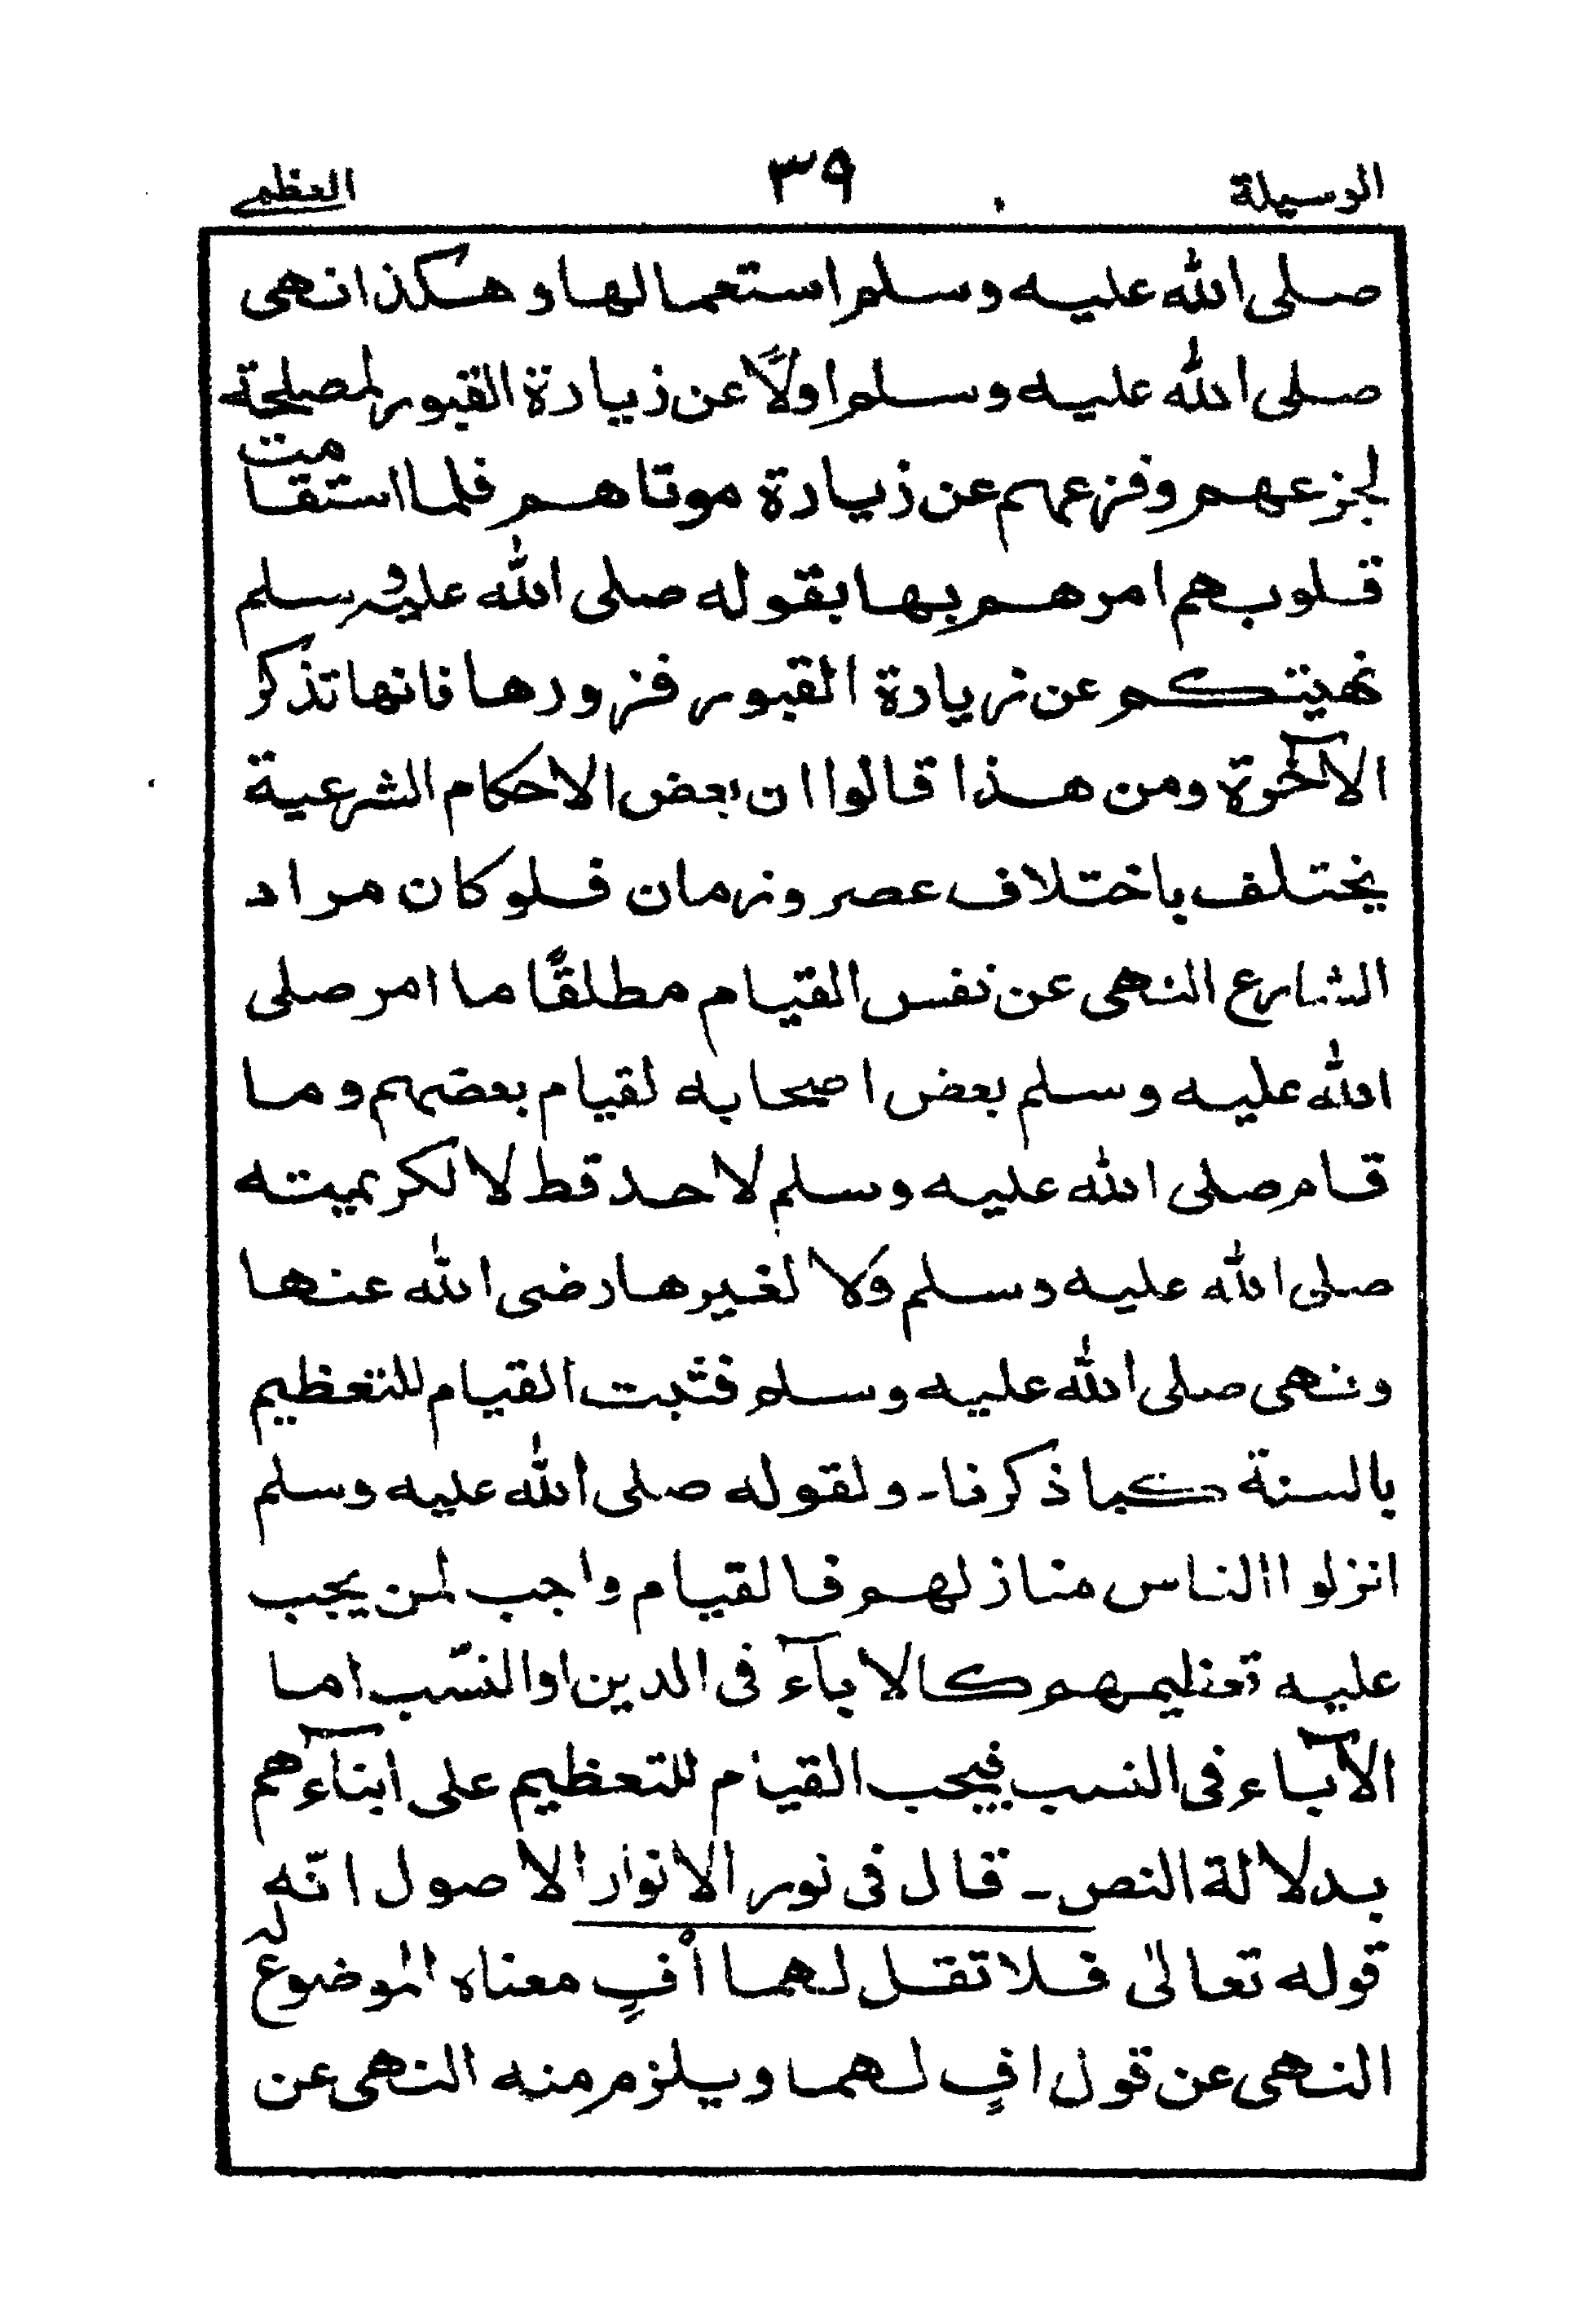 الوسيلة ٣٩ العظمى
صلى الله عليه وسلم استعمالها و هكذا نهى
صلى الله عليه وسلم اولاً عن زيارة القبور لمصلحة
لجزعهم وفزعهم عن زيارة موتاهم فلما استقامت
قلوبهم امرهم بها بقوله صلى الله عليه وسلم
نهيتكم عن زيارة القبور فزورها فانها تذكر
الآخرة ومن هذا قالوا ان بعض الاحكام الشرعية
يختلف باختلاف عصر وزمان فلو كان مراد
الشارع النهى عن نفس القيام مطلقًا ما امر صلى
الله عليه وسلم بعض اصحابه لقيام بعضهم وما
قام صلى الله عليه وسلم لاحد قط لا لكريمته
صلى الله عليه وسلم ولا لغيرها رضى الله عنها
ونهى صلى الله عليه وسلم فثبت القيام للتعظيم
بالسنة كما ذكرنا۔ ولقوله صلى الله عليه وسلم
انزلوا الناس منازلهم فالقيام واجب لمن يجب
عليه تعظيمهم كالاباٰء فى الدين او النسب اما
الآباء فى النسب فيجب القيام للتعظيم على ابنآءهم
بدلالة النص ۔ قال فى نور الانوار الاصول انّه لـ
قوله تعالىٰ فلا تقل لهما أفٍ معناه الموضوع
النهى عن قول افٍ لهما ويلزم منه النهى عن